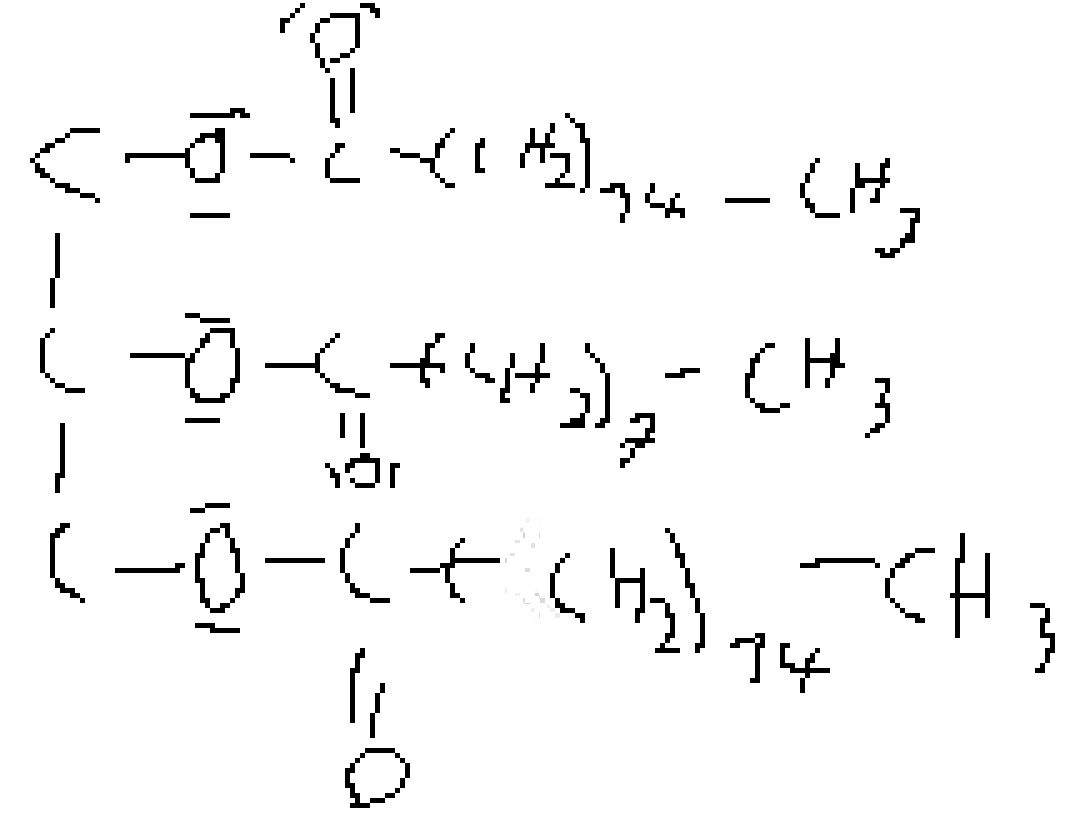 O
C - O - C - (CH2)14 - CH3
C - O - C - (CH2)7 - CH3
O
C - O - C - (CH2)14 - CH3
O